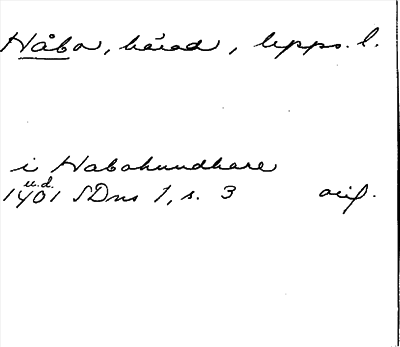 Håbo, härad, Upps. l.
i Habohundhare
u.d.
1401 SDns 1, s. 3 orig.